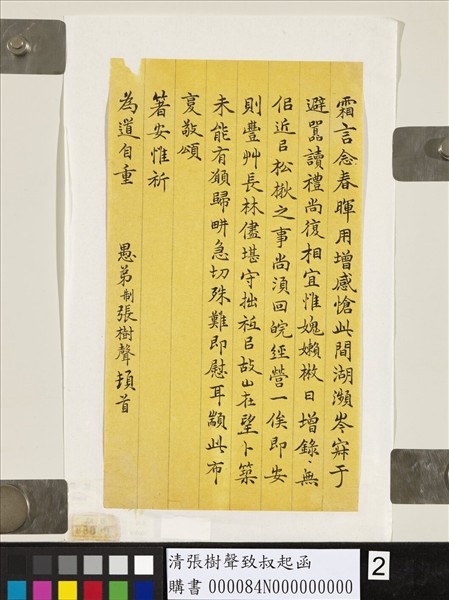 霜言念春暉用增感愴此間湖瀕岑寂于
避囂讀禮尚復相宜惟媿嬾散日增錄〻無
侣近㠯松楸之事尚須回皖經營一俟即安
則豐艸長林儘堪守拙祗㠯故山在望卜築
未能有願歸畊急切殊難即慰耳顓此布
复敬頌
箸安惟祈
為道自重
愚弟制張樹聲頓首
清張樹聲致叔起函
購書 000084N000000000
2